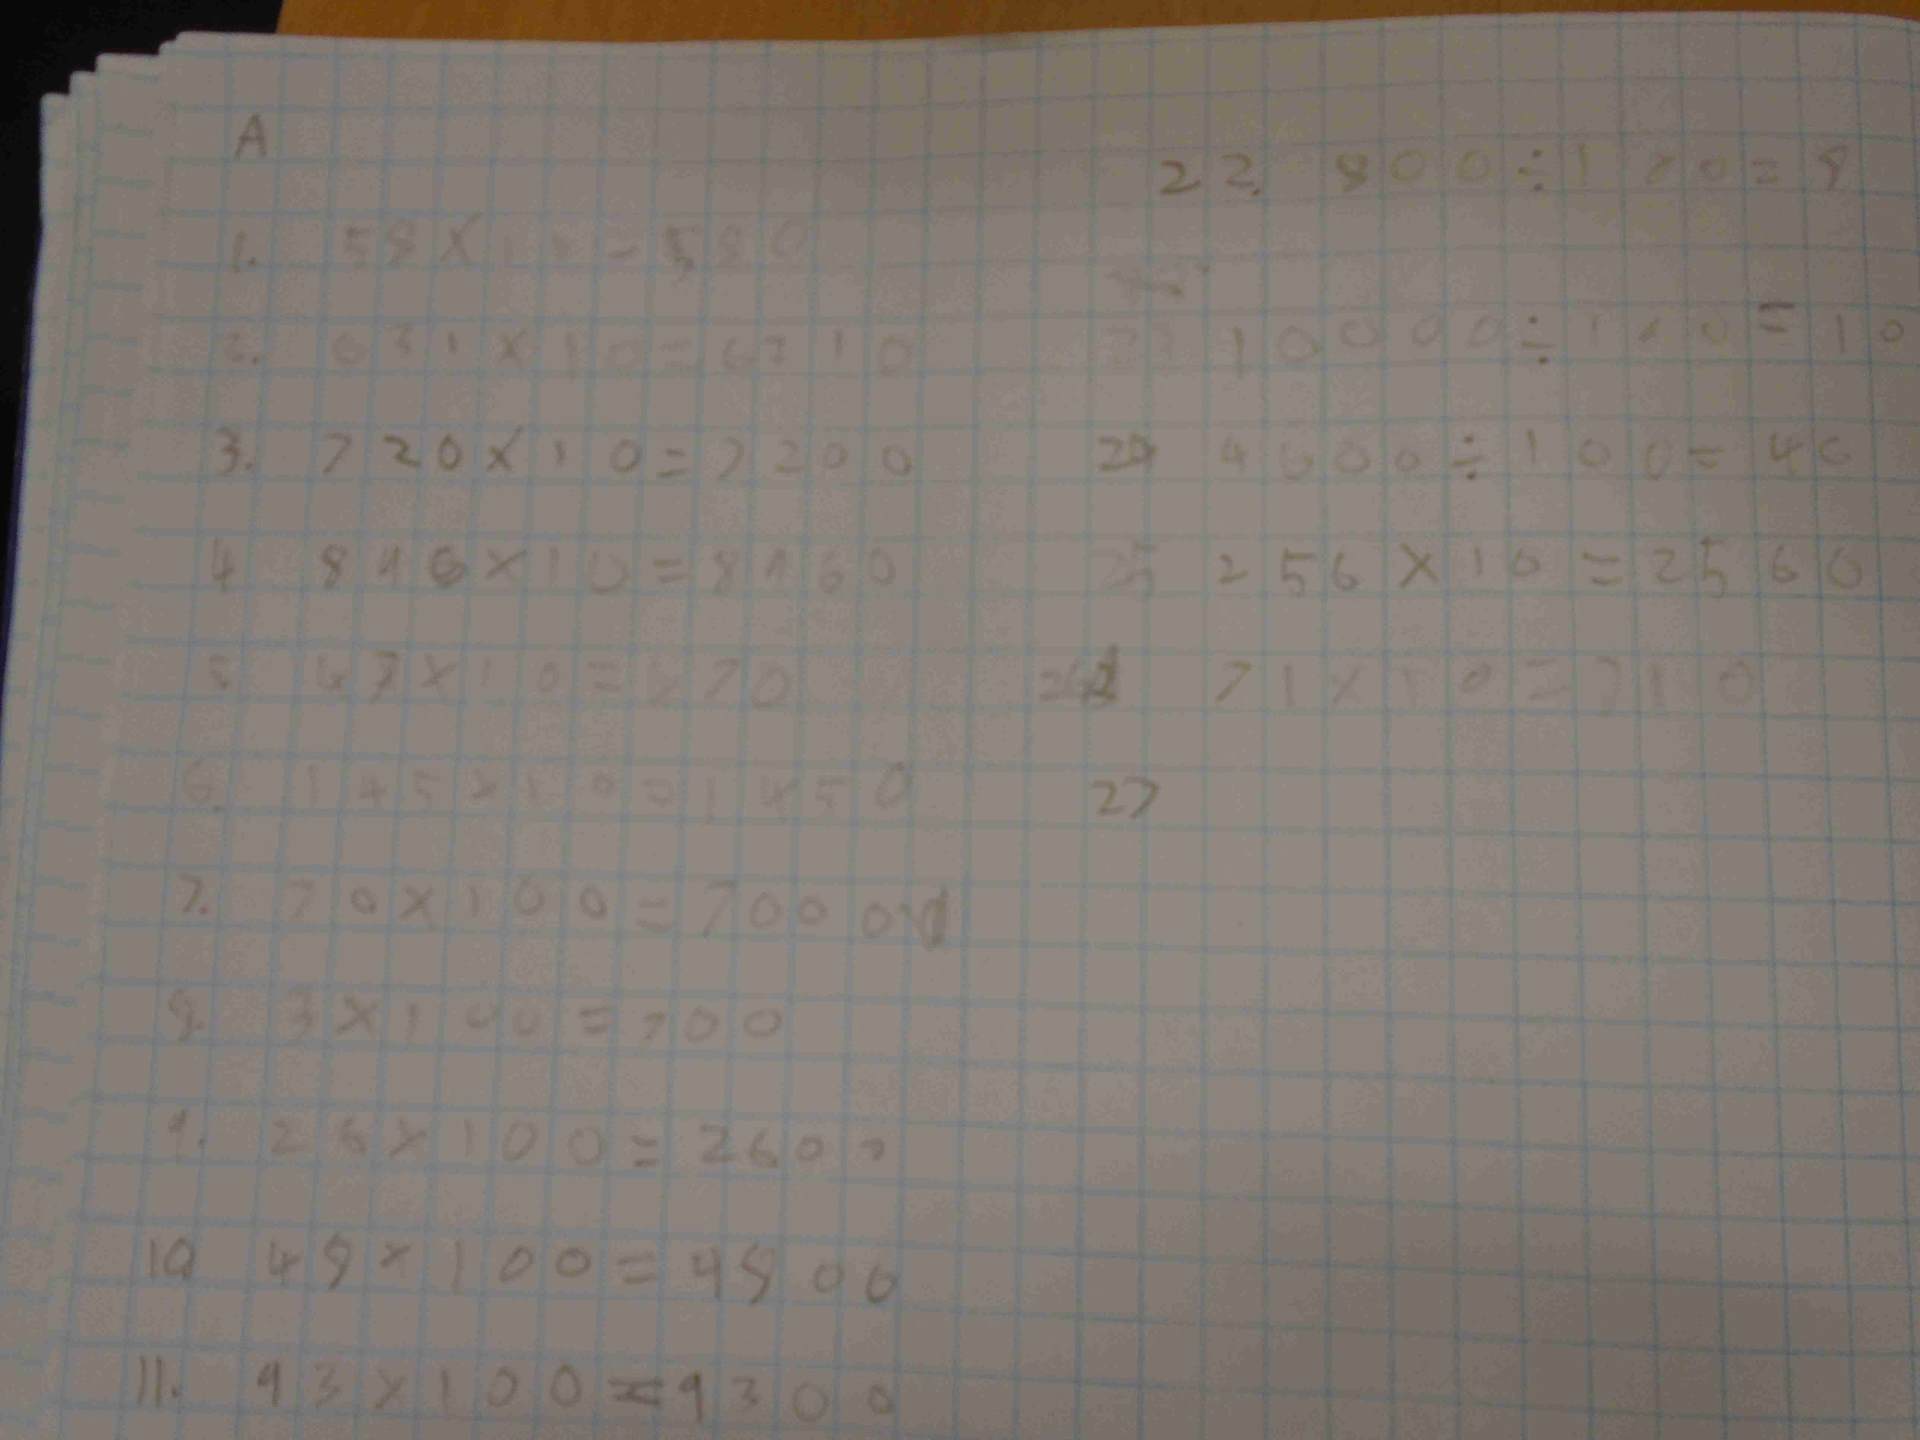 A
1. 58 x 10 = 580
2. 631 x 10 = 6310
3. 720 x 10 = 7200
4 816 x 10 = 8160
5 47 x 10 = 470
6. 145 x 10 = 1450
7. 70 x 100 = 7000
8. 3 x 100 = 300
9. 26 x 100 = 2600
10 49 x 100 = 4900
11. 93 x 100 = 9300
22. 800 ÷ 100 = 8
23 10000 ÷ 100 = 10
24 4000 ÷ 100 = 40
25 256 x 10 = 2560
26 71 x 10 = 710
27